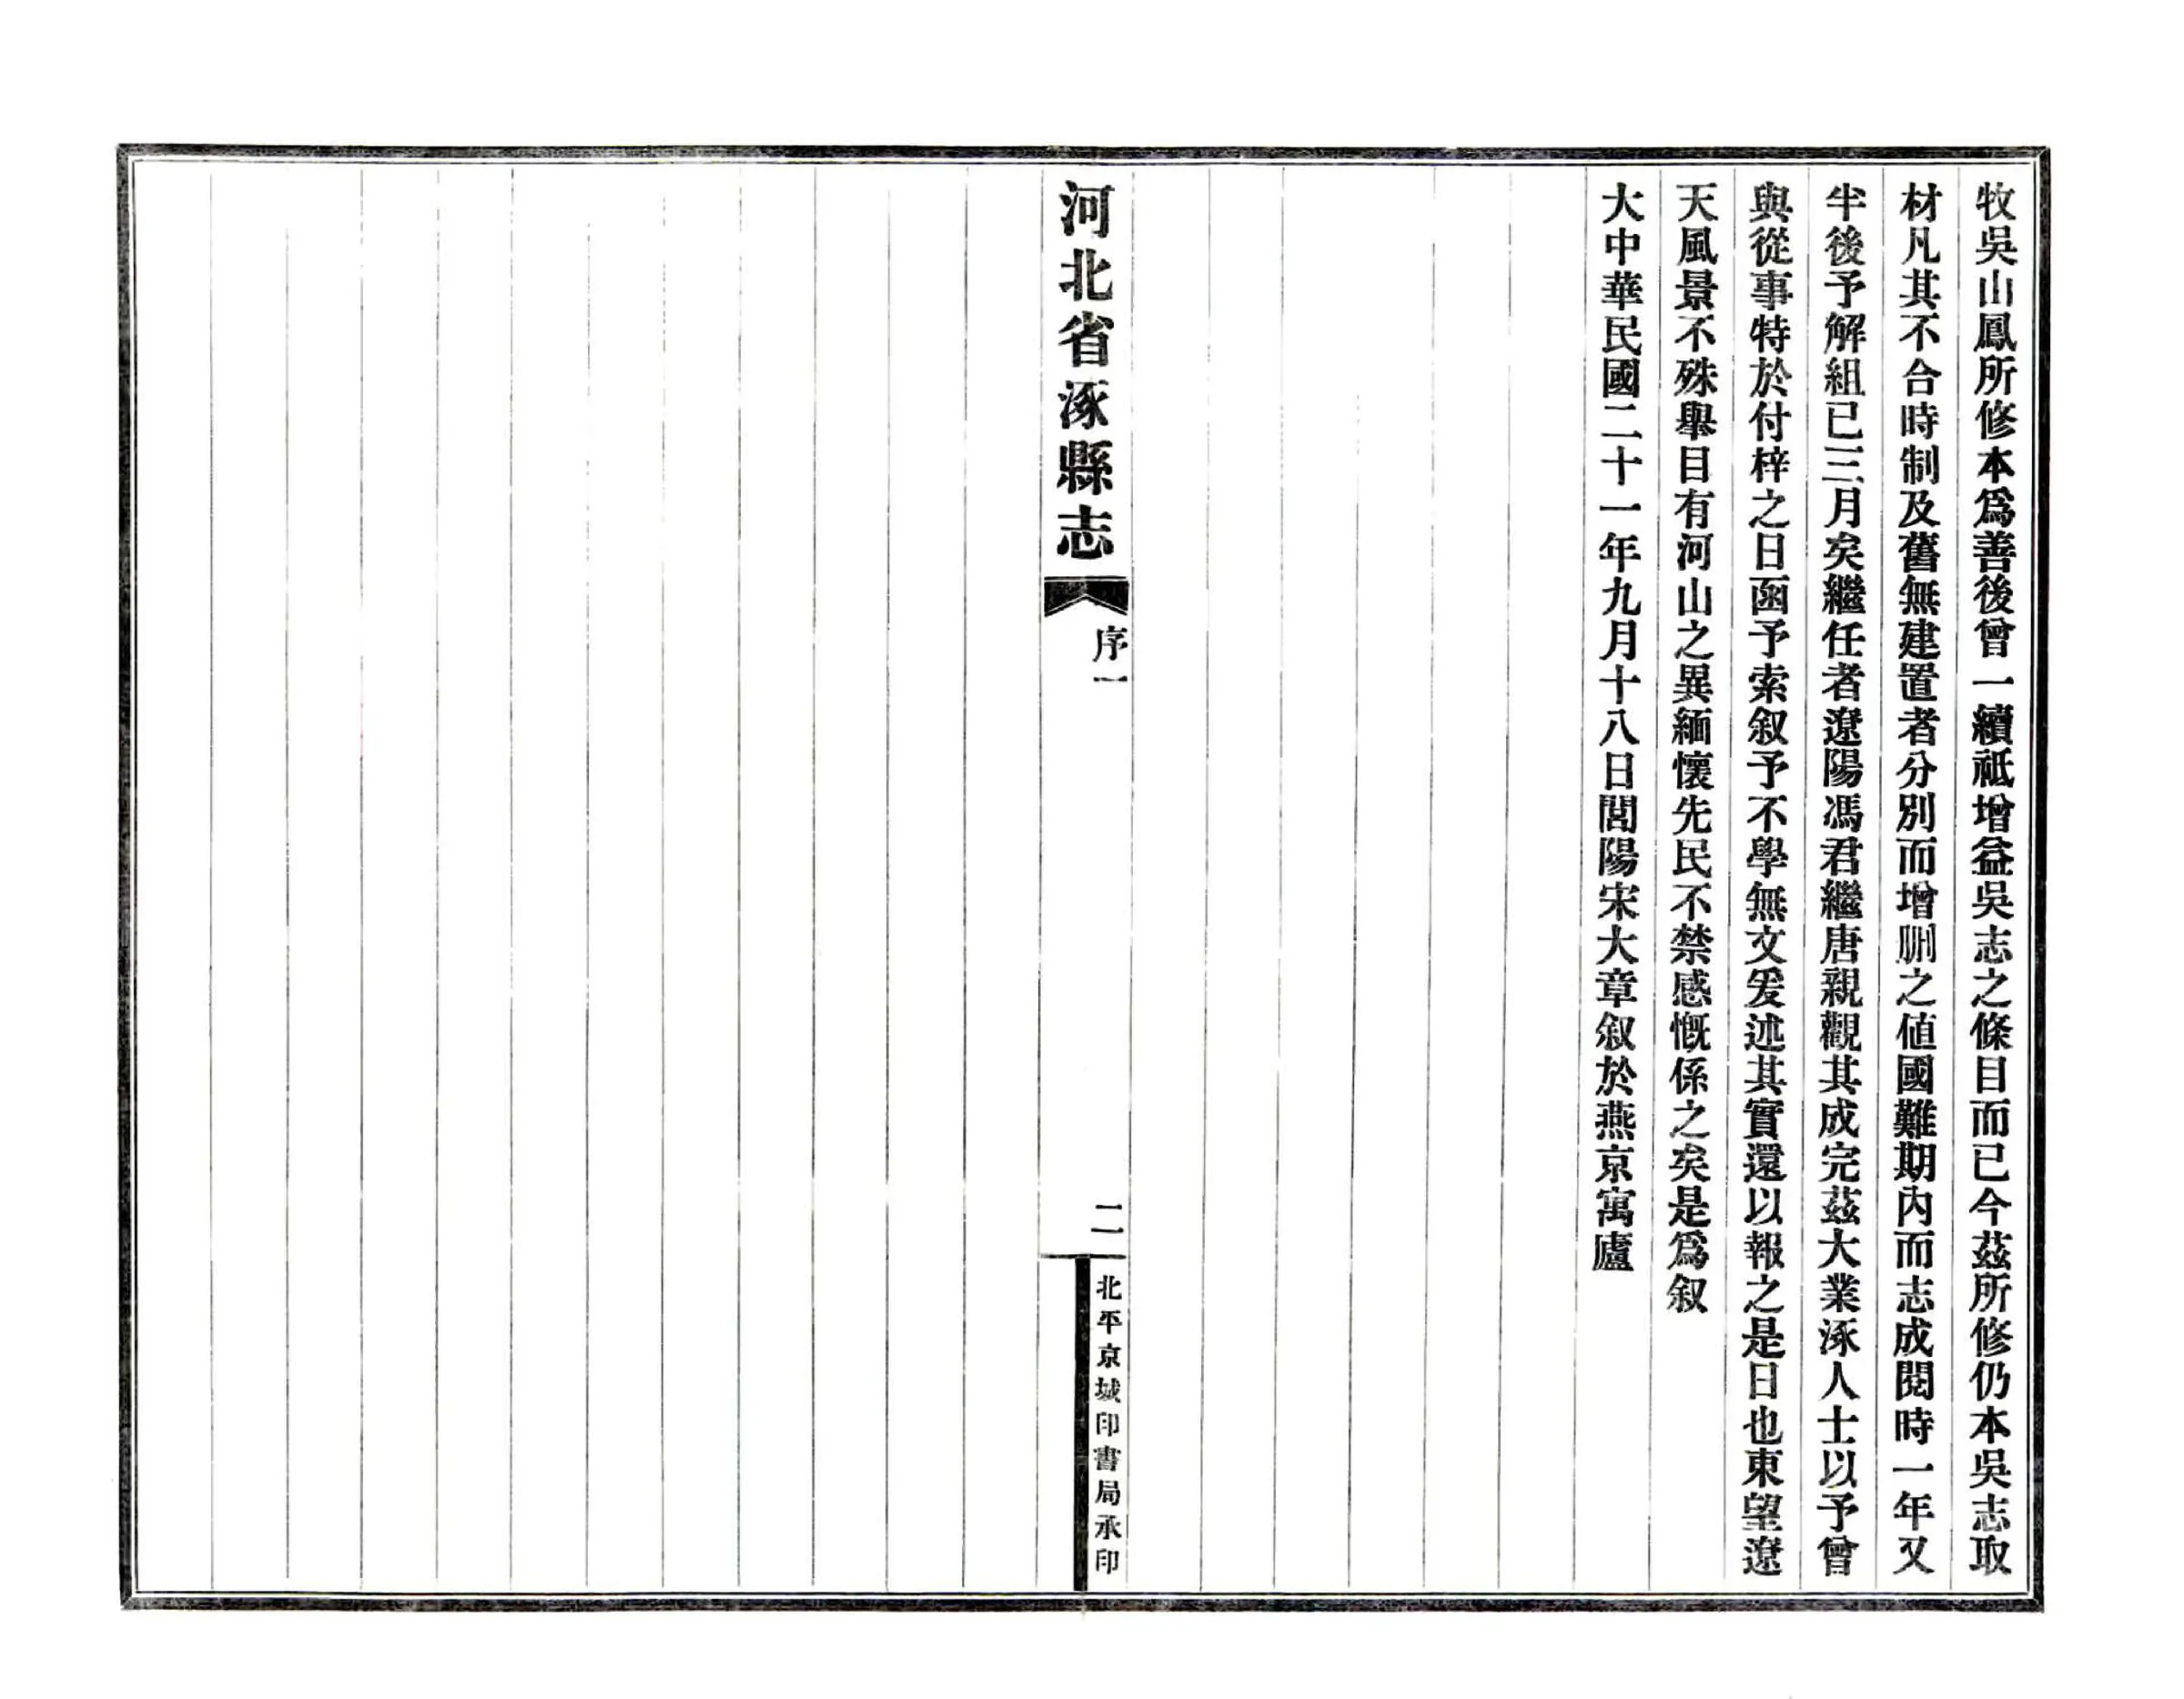 牧吳山鳳所修本爲善後曾一續祗增益吳志之條目而已今茲所修仍本吳志取
材凡其不合時制及舊無建置者分別而增刪之値國難期內而志成閱時一年又
半後予解組已三月矣繼任者遼陽馮君繼唐親觀其成完茲大業涿人士以予曾
與從事特於付梓之日函予索叙予不學無文爰述其實還以報之是日也東望遼
天風景不殊舉目有河山之異緬懷先民不禁感慨係之矣是爲叙
大中華民國二十一年九月十八日閭陽宋大章叙於燕京寓廬
河北省涿縣志
序一
二
北平京城印書局承印